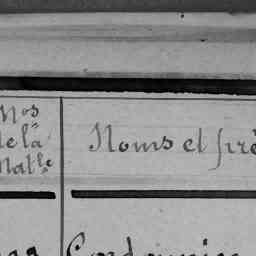 Nos
de la
Matle
Noms et pré
Cordonnier